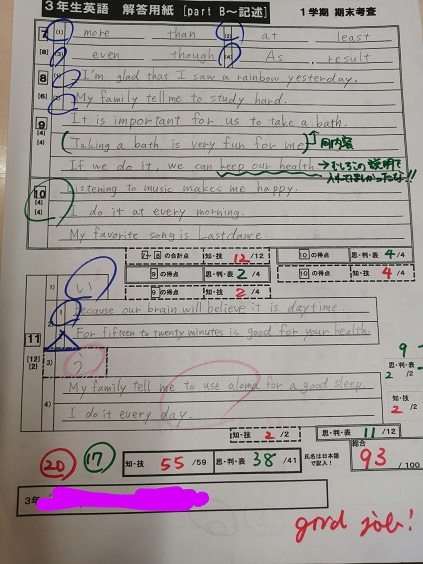 3年生英語 解答用紙 [part B～記述] 1学期 期末考査
7 (1) more than (2) at least
[8] (3) even though (4) As result
8 (1) I'm glad that I saw a rainbow yesterday.
[6] (2) My family tell me to study hard.
9 It is important for us to take a bath.
[4] (Taking a bath is very fun for me) 同内容
[4] If we do it, we can keep our health. →むしろこの説明で
入れてほしかったな!!
10 Listening to music makes me happy.
[4] I do it at every morning.
[4] My favorite song is Lastdance.
7～8の合計点 知・技 12/12 10の得点 思・判・表 4/4
9の得点 思・判・表 2/4 10の得点 知・技 4/4
9の得点 知・技 2/4
1) い
11 2) 1 Because our brain will believe it is daytime.
2 For fifteen to twenty minutes is good for your health.
[12] 3) う 9
[2] 2/2
My family tell me to use aloma for a good sleep. 知・技
4) I do it every day. 2/2
知・技 2/2 思・判・表 11/12
20 17 知・技 55/59 思・判・表 38/41 氏名は日本語で記入! 総合 93/100
3年
good job!